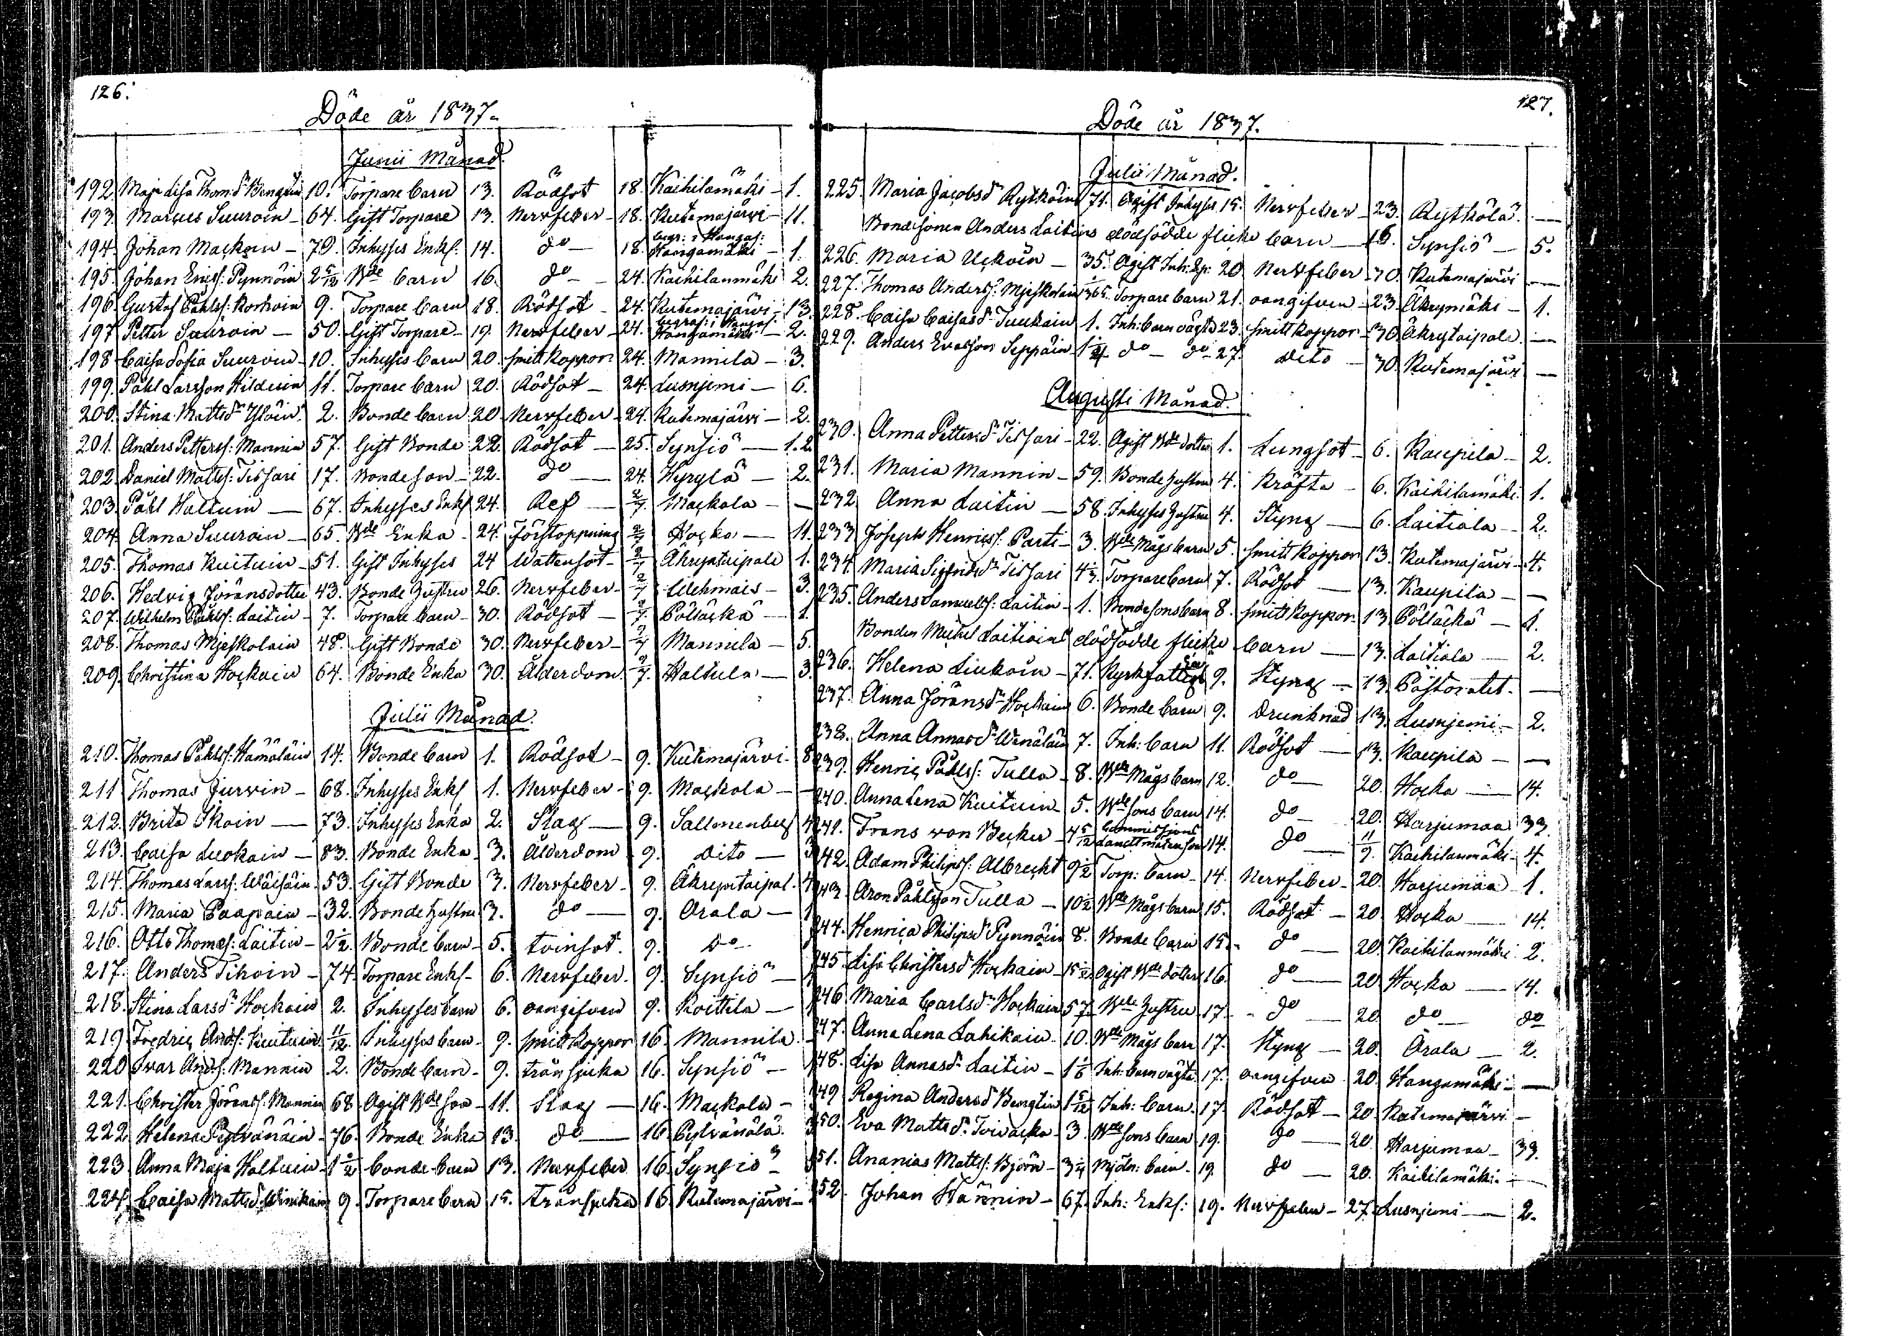 126.
Döde år 1837.
Junii Månad.
192. Maja Lisa Thom:dr Bengtin 10. Torpare Barn 13. Rödsot 18. Kaihilamäki 1.
193. Marcus Suuroin 64. Gift Torpare 13. Nervfeber 18. Kutemajärvi 11.
194. Johan Mackoin 79. Inhyses Enkl. 14. do 18. Hangamäki 1.
195. Johan Erics. Pynnöin 2 5/12 Bde Barn 16. do 24. Kaihilanmäki 2.
196. Gustaf Påhls. Korhoin 9. Torpare Barn 18. Rödsot 24. Kutemajärvi 13.
197. Petter Suuroin 50. Gift Torpare 19. Nervfeber 24. Hangamäki 2.
198. Caisa Sofia Suuroin 10. Inhyses Barn 20. Smittkoppor 24. Mannila 3.
199. Påhl Larsson Hilduin 11. Torpare Barn 20. Rödsot 24. Lusnjemi 6.
200. Stina Mattsdr 2. Bonde Barn 20. Nervfeber 24. Kutemajärvi 2.
201. Anders Petters. Mannin 57. Gift Bonde 22. Rödsot 25. Synsiö 1.2.
202. Daniel Matts. Tissari 17. Bondeson 22. do 24. Hyrylä 2.
203. Påhl Haltuin 67. Inhyses Enkl 24. Ref 2/7. Mackola
204. Anna Suuroin 65. Bde Enka 24. Förstoppning 2/7 Hocka 11.
205. Thomas Kuituin 51. Gift Inhyses 24 Wattensot 2/7 Äkryntaipale 1.
206. Hedvig Jöransdotter 43. Bonde Hustru 26. Nervfeber 2/7 3.
207. Wilhelm Påhls. Laitin 7. Torpare Barn 30. Rödsot 2/7. Pöllackä 1
208. Thomas Mjeskolain 48. Gift Bonde 30. Nervfeber 2/7 Mannila 5.
209. Christina Hockain 64. Bonde Enka 30. Ålderdom 2/7. Haltula 3
Julii Månad.
210. Thomas Påhls. Hämäläin 14. Bonde Barn 1. Rödsot 9. Kutemajärvi 8
211 Thomas Jurvin 68. Inhyses Enkl 1. Nervfeber 9. Mackola
212. Brita Ikoin 73. Inhyses Enka 2. Slag 9. Sallonenberg 4
213. Caisa Luckain 83. Bonde Enka 3. Ålderdom 9. Dito 3
214. Thomas Lars. Wäisäin 53. Gift Bonde 3. Nervfeber 9. Äkryntaipal. 4
215. Maria Paapain 32. Bonde Hustru 3. do 9. Orala 1
216. Otto Thoms. Laitin 2 1/2 Bonde Barn 5. tvinsot. 9. Do
217. Anders Tihoin 74. Torpare Enkl. 6. Nervfeber 9. Synsiö
218. Stina Larsdr Hockain 2. Inhyses Barn 6. oangifven 9. Koittila
219 Fredric Ands. Kuituin 11/12 Inhyses Barn 9. Smittkoppor 16. Mannila
220 Ivar Ands. Mannin 2. Bonde Barn 9. trånsjuka 16. Synsiö
221. Christer Jörans. Mannin 68 Ogift Bde son 11. Slag 16. Mackola
222 Helena Pylvänäin 76. Bonde Enka 13. do 16 Pylvänälä
223. Anna Maja Haltuin 1 1/2 Bonde Barn 13. Nervfeber 16. Synsiö
224. Caisa Mattsdr Winikain 9. Torpare Barn 15. trånsjuka 16 Kutemajärvi
127.
Döde år 1837.
Julii Månad.
225. Maria Jacobsdr Rytköin 71. Ogift Inhyses 15. Nervfeber 23. Rytkölä
Bondesonen Anders Laitins dödfödde flicke barn 16. Synsiö 5.
226. Maria Uckoin 35. Ogift Inh: 20 Nervfeber 30. Kutemajärvi
227. Thomas Anders. Mjeskolain Torpare Barn 21. oangifven 23. Äkrymäki 1.
228. Caisa Caisasdr Tuukain 1. Inh: Barn oägta 23. Smittkoppor 30 Äkrytaipale
229. Anders Evasson Seppäin 1 1/4 do do 27. dito 30. Kutemajärvi
Augusti Månad.
230. Anna Pettersdr Tissari 22. Ogift Bde dotter 1. Lungsot 6. Kaupila 2.
231. Maria Mannin 59. Bonde Hustru 4. Kräfta 6. Kaihilamäki 1.
232 Anna Laitin 58. Inhyses Hustru 4. Styng 6. Laitiala 2.
233 Joseph Henrics. Parti 3. Bde Mågs Barn 5. Smittkoppor 13. Kutemajärvi 4.
234. Maria Sigfridsdr Tissari Torpare Barn 7. Rödsot 13. Kaupila
235. Anders Samuels. Laitin 1. Bondesons Barn 8. Smittkoppor 13 Pöllackä 1.
Bonden Michel Laitiains dödfödde flicke Barn 13. Laitiala 2.
236. Helena Liukoin 71. Kyrkfattig 9. Styng 13. Pastoratet.
237. Anna Jöransdr Hockain 6. Bonde Barn 9. Drunknad 13. Lusnjemi 2.
238. Anna Annasdr Wenäläin 7. Inh: Barn 11. Rödsot 13. Kaupila
239. Henric Påhls: Tulla 8. Bde Mågs Barn 12. do 20. Hocka 14.
240. Anna Lena Kuituin 5. Bde Sons Barn 14. do 20. Harjumaa 33
241. Frans von Becker 4 5/12 Commissions Landtmätereson 14. do 11/9. Kaihilanmäki 4.
242. Adam Philips. Albrecht 9 1/2 Torp: Barn 14. Nervfeber 20 Harjumaa 1.
243 Aron Påhlsson Tulla 10 1/2 Bde Mågs Barn 15. Rödsot 20 Hocka 14.
244. Henrica Philipsdr Pynnöin 8. Bonde Barn 15. do 20. Kaihilanmäki 2.
245 Lisa Christersdr Hockain 15 1/2 Ogift Bde dotter 16. do 20 Hocka 14.
246 Maria Carlsdr Hockain 57. Bde Hustru 17. do 20. do do
247. Anna Lena Lahikain 10. Bde Mågs Barn 17. Styng 20. Orala 2.
248. Lisa Annasdr Laitin 1 1/6 Inh: Barn oägta 17. oangifven 20. Hangamäki
249 Regina Andersdr Bengtin 1 5/12 Inh: Barn 17. Rödsot 20. Kutemajärvi
250. Eva Mattsdr Toivacka 3. Bde Sons Barn 19. do 20 Harjumaa 33.
251. Ananias Matts. Björn 3 1/4 Mjöln: Barn 19. do 20. Kaihilamäki
252. Johan Hännin 67. Inh: Enkl: 19. Nervfeber 27. Lusnjemi 2.